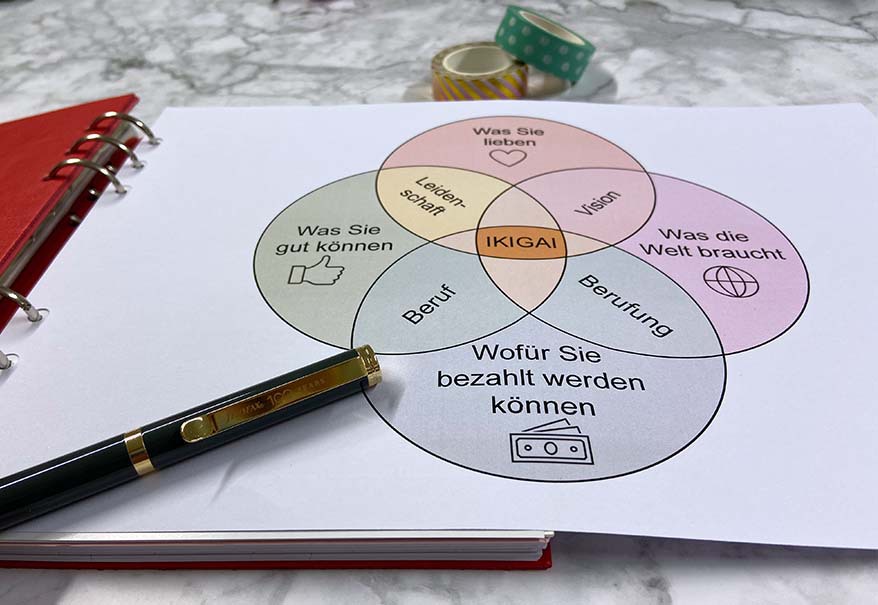 Was Sie
lieben
Leiden-
schaft
Vision
Was Sie
gut können
IKIGAI
Was die
Welt braucht
Beruf
Berufung
Wofür Sie
bezahlt werden
können
100 YEARS